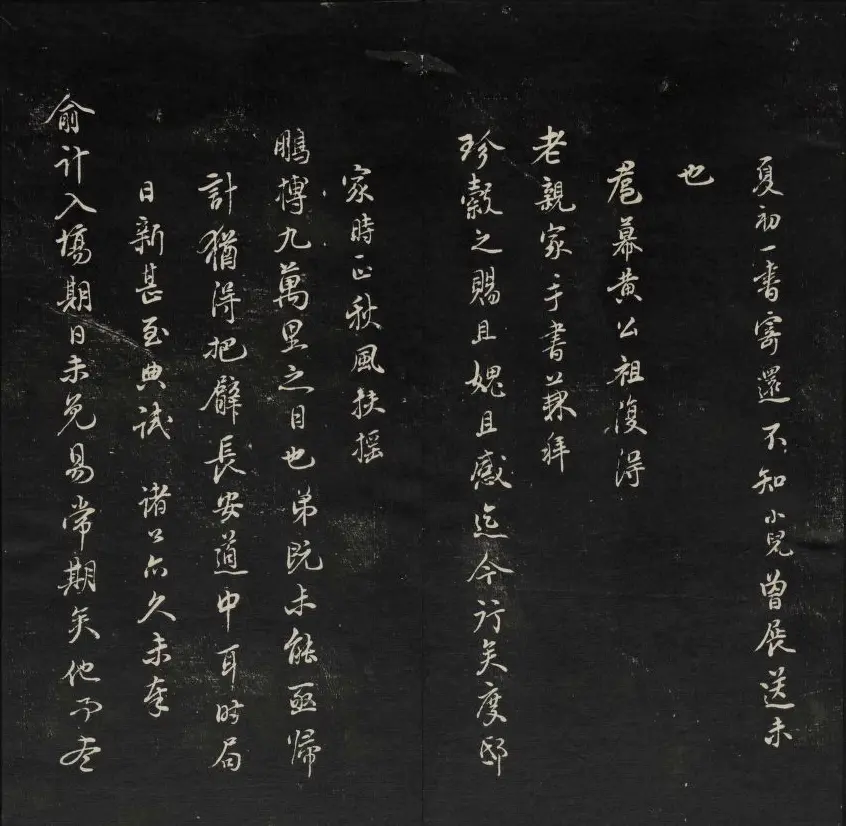 夏初一書寄還不知小兒曾展送未
也
扈幕黄公祖復得
老親家手書兼拜
珍縠之賜且媿且感迄今行矣度邸
家時正秋風扶摇
鵬摶九萬里之日也弟既未能亟歸
計猶得把臂長安道中耳時局
日新甚至典試諸公亦久未奉
俞計入塲期日未免易常期矣他不盡